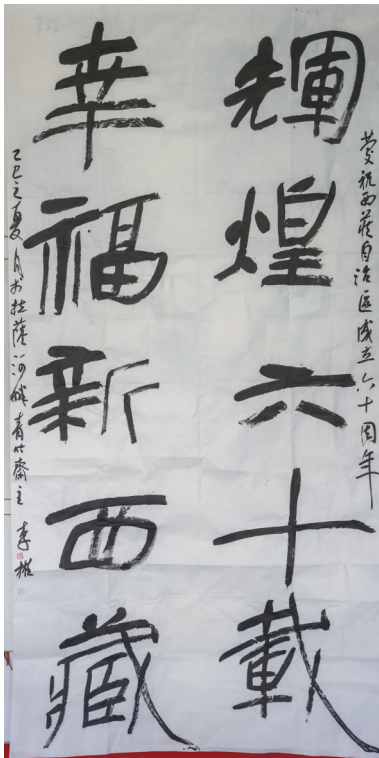 慶祝西藏自治區成立六十周年
輝煌六十載
幸福新西藏
乙巳之夏月於拉薩河畔青竹齋主李